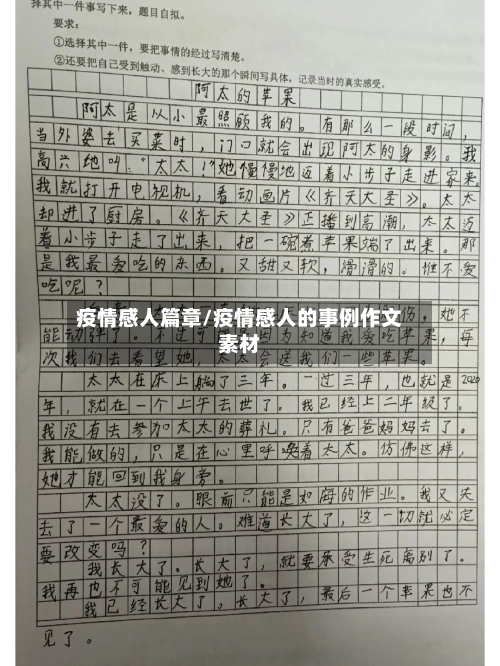 择其中一件事写下来，题目自拟。
要求：
①选择其中一件，要把事情的经过写清楚。
②还要把自己受到触动、感到长大的那个瞬间写具体，记录当时的真实感受。
阿太的苹果
阿太是从小最照顾我的。有那么一段时间，
当外婆去买菜时，门口就会出现阿太的身影。我
高兴地叫：“太太！”她慢慢地迈着小步子走进家来。
我就打开电视机，看动画片《齐天大圣》。太太
却进了厨房。《齐天大圣》正播到高潮，太太迈
着小步子走了出来，把一碗煮苹果端了出来。那
是我最爱吃的东西。又甜又软，滑滑的。谁不爱
吃呢？
伤，她不
疫情感人篇章/疫情感人的事例作文
素材
能动弹了。不过可 因为知道我爱吃苹果，每
次我们去看望她，太太会送我们一些苹果。
太太在床上躺了三年。一过三年，也就是2020
年，就在一个上午去世了。我已经上二年级了。
我没有去参加太太的葬礼。只有爸爸妈妈去了。
我能做的，只是在心里呼唤着太太。仿佛这样，
她才能回到我身旁。
太太没了。眼前只能是如海的作业。我又失
去了一个最爱的人。难道长大了，这一切就必定
要改变吗？
我长大了。长大了，就要承受生死离别了。
我再也不可能见到她了。
我已经长大了。长大了，最后一个苹果也不
见了。